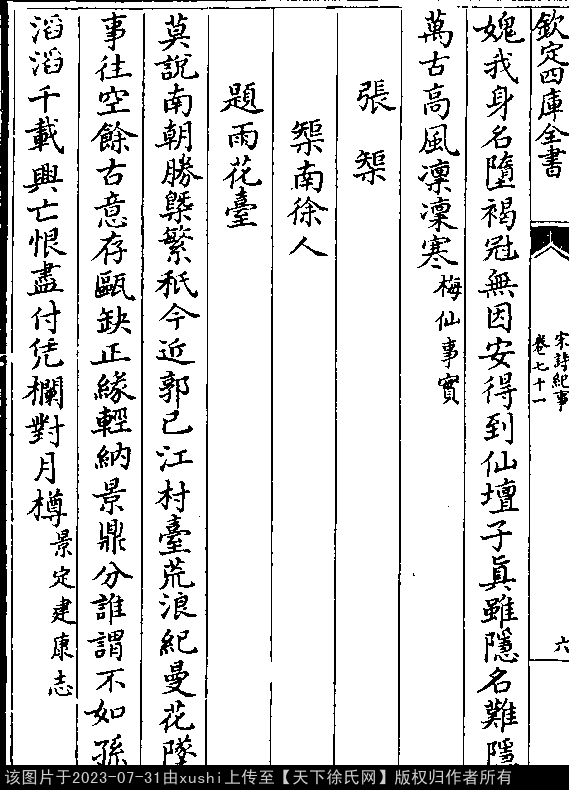 欽定四庫全書
宋詩紀事
卷七十一
六
媿我身名墮褐冠無因安得到仙壇子眞雖隱名難隱
萬古高風凛凛寒梅仙事實
張榘
榘南徐人
題雨花臺
莫說南朝勝槩繁秖今近郭已江村臺荒浪紀曼花墜
事往空餘古意存甌缺正緣輕納景鼎分誰謂不如孫
滔滔千載興亡恨盡付凭欄對月樽景定建康志
该图片于2023-07-31由xushi上传至【天下徐氏网】版权归作者所有